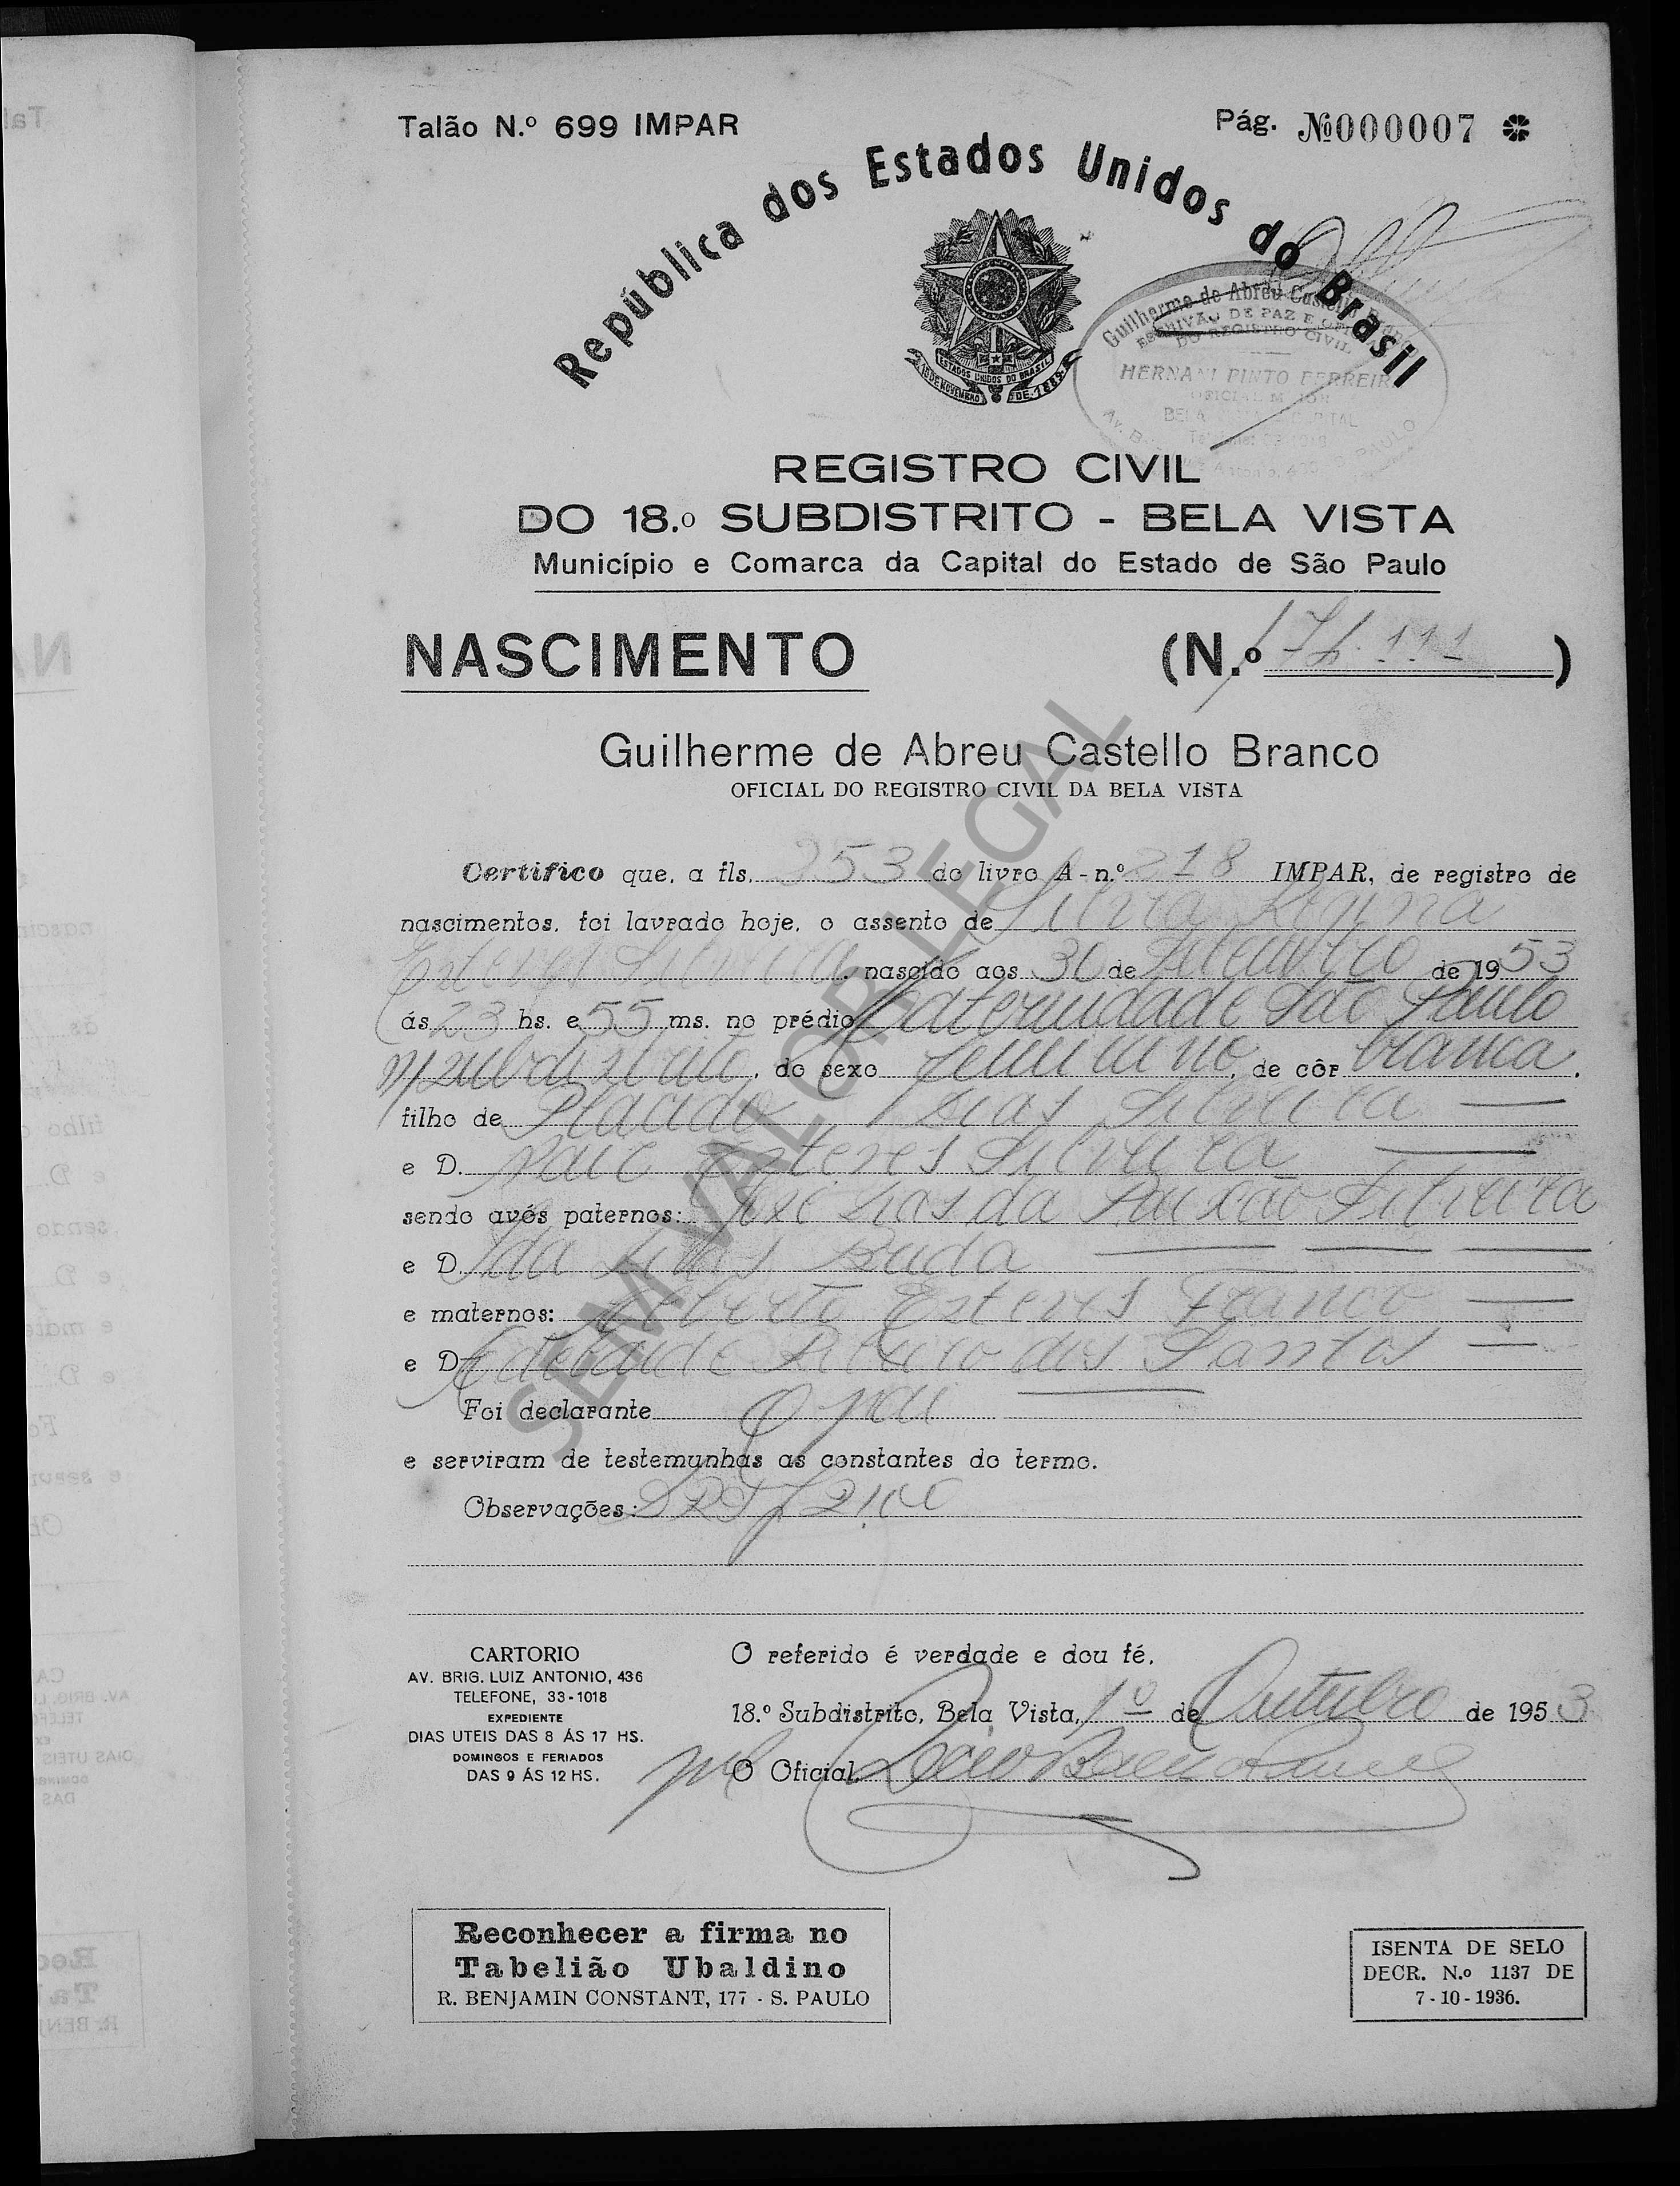 Talão N.º 699 IMPAR
Pág. №000007
República dos Estados Unidos do Brasil
ESTADOS UNIDOS DO BRASIL
15 DE NOVEMBRO DE 1889
Guilherme de Abreu Castello Branco
ESCRIVÃO DE PAZ E OFICIAL
DO REGISTRO CIVIL
HERNANI PINTO FERREIRA
OFICIAL MAIOR
REGISTRO CIVIL
DO 18.º SUBDISTRITO - BELA VISTA
Município e Comarca da Capital do Estado de São Paulo
NASCIMENTO (N.º 111)
Guilherme de Abreu Castello Branco
OFICIAL DO REGISTRO CIVIL DA BELA VISTA
Certifico que, a fls. 253 do livro A - n.º 218 IMPAR, de registro de
nascimentos, foi lavrado hoje, o assento de Silvia Regina
Esteves Silveira, nascido aos 30 de Setembro de 1953
ás 23 hs. e 55 ms. no prédio Maternidade São Paulo
n/subdistrito, do sexo feminino, de côr branca,
filho de Placido Dias Silveira
e D. Esteves Silveira
sendo avós paternos: José Dias da Paixão Silveira
e D. Ida
e maternos: Alberto Esteves Franco
e D. Adelaide Ribeiro dos Santos
Foi declarante O pai
e serviram de testemunhas as constantes do termo.
Observações:
SEM VALOR LEGAL
CARTORIO
AV. BRIG. LUIZ ANTONIO, 436
TELEFONE, 33-1018
EXPEDIENTE
DIAS UTEIS DAS 8 ÁS 17 HS.
DOMINGOS E FERIADOS
DAS 9 ÁS 12 HS.
O referido é verdade e dou fé.
18.º Subdistrito, Bela Vista, 1º de Outubro de 1953
O Oficial,
Reconhecer a firma no
Tabelião Ubaldino
R. BENJAMIN CONSTANT, 177 - S. PAULO
ISENTA DE SELO
DECR. N.º 1137 DE
7-10-1936.